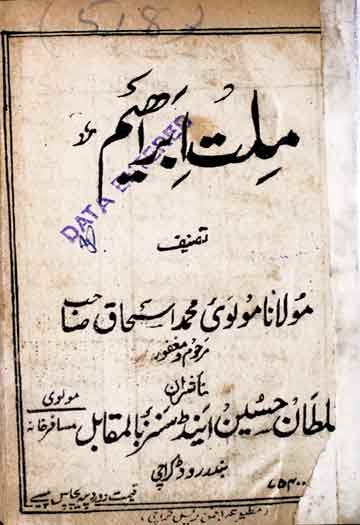 (518)
ملت ابراھیم
DATA ENTERED
تصنیف
مولانا مولوی محمد اسحاق صاحب
مرحوم و مغفور
ناشران
سلطان حسین اینڈ سنز بالمقابل مولوی مسافر خانہ
بندر روڈ کراچی
قیمت دو روپیہ پچاس پیسے